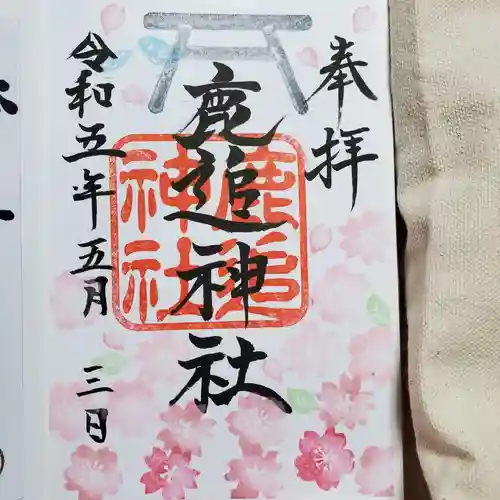 奉拝
鹿追神社
鹿追神社
令和五年五月三日